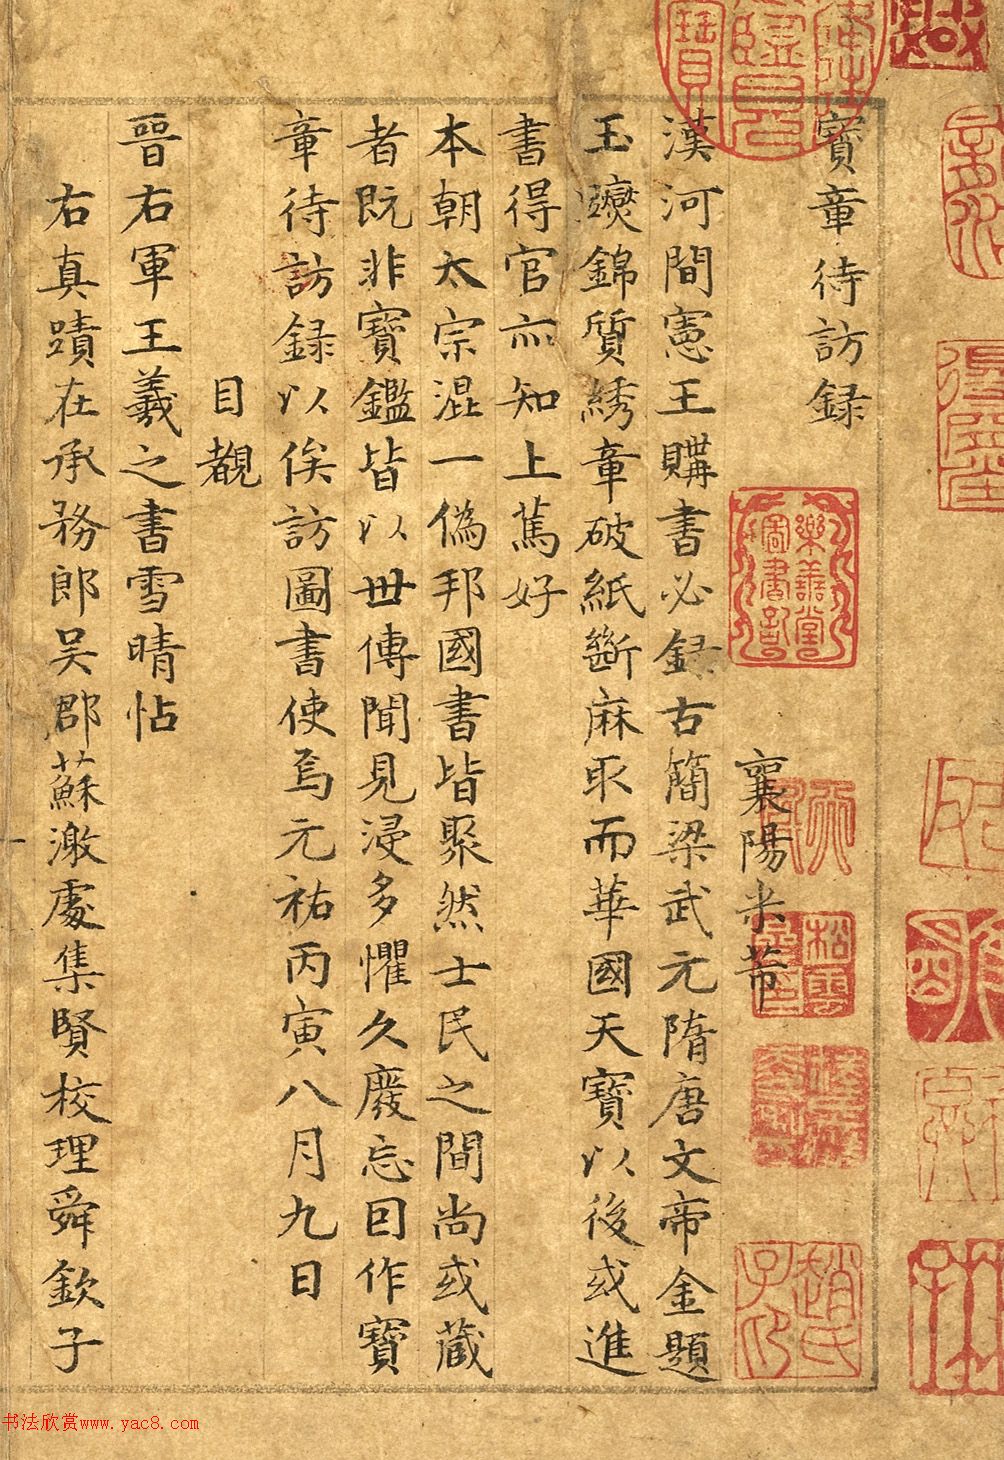 寶章待訪録
襄陽米芾
漢河間憲王購書必録古簡梁武元隋唐文帝金題
玉躞錦質綉章破紙斷麻取而華國天寶以後或進
書得官亦知上篤好
本朝太宗混一偽邦國書皆聚然士民之間尚或藏
者既非寶鑑皆以世傳聞見浸多懼久廢忘囙作寶
章待訪録以俟訪圖書使焉元祐丙寅八月九日
目覩
晉右軍王羲之書雪晴帖
右真蹟在承務郎吴郡蘇激處集賢校理舜欽子
樂善堂
圖書記
松雪
趙氏
子印
书法欣赏www.yac8.com